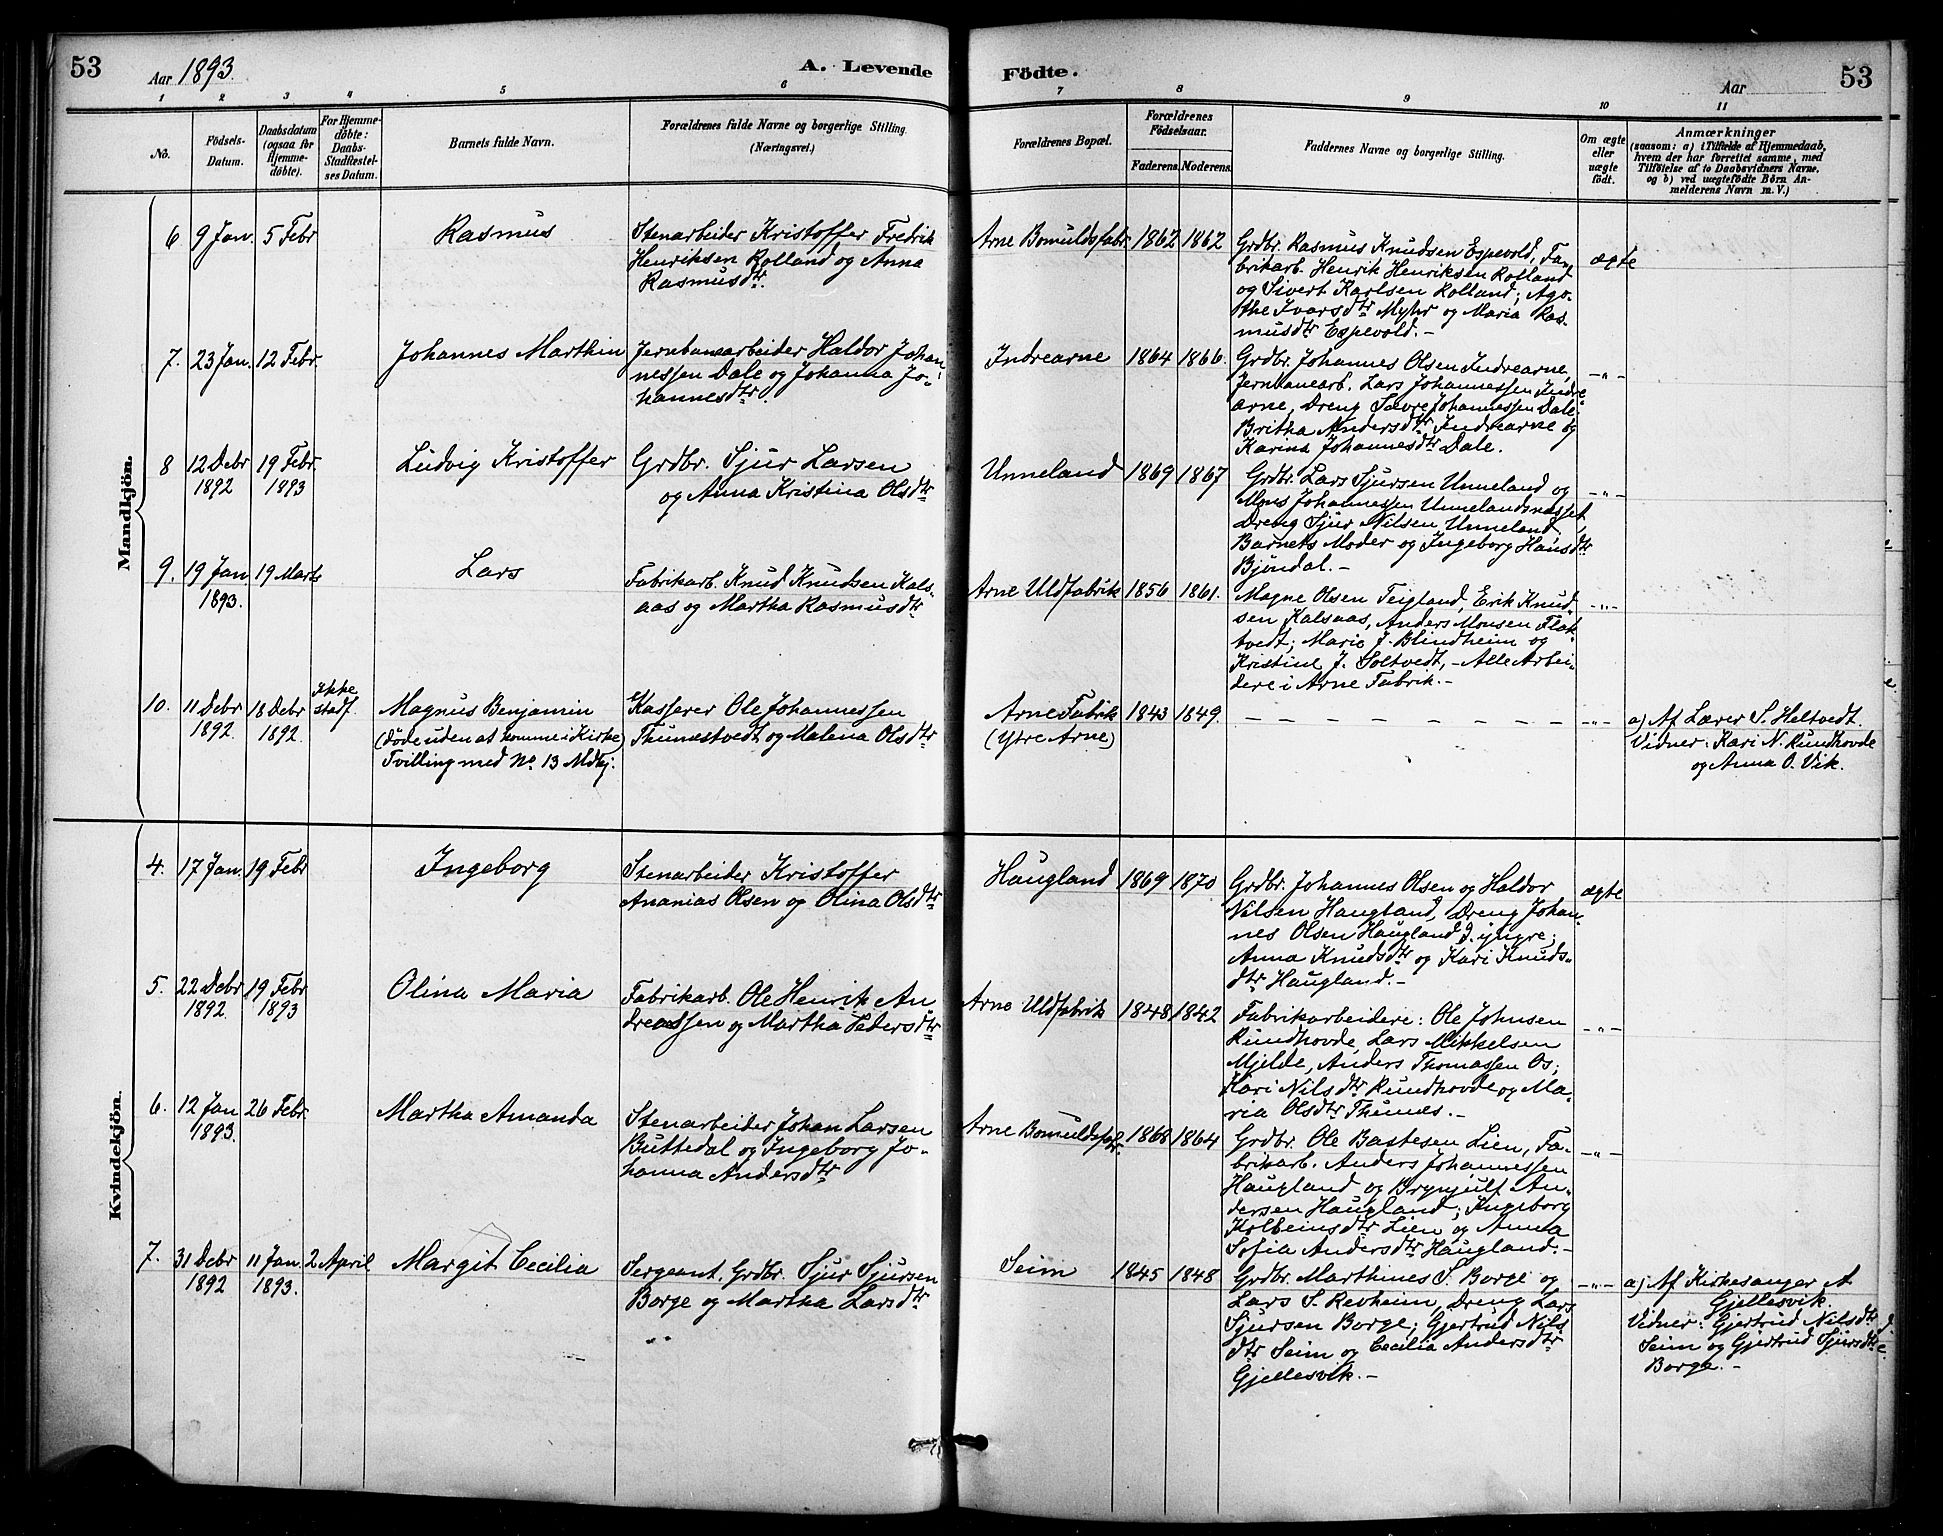 53
Aar 1893.
A. Levende Födte.
Aar
53
1 2 3 4 5 6 7 8 9 10 11
No.
Födsels-
Datum.
Daabsdatum
(ogsaa for
Hjemme-
döbte).
For Hjemme-
döbte:
Daabs-
Stadfæstel-
ses Datum.
Barnets fulde Navn.
Forældrenes fulde Navne og borgerlige Stilling.
(Næringsvei.)
Forældrenes Bopæl.
Forældrenes
Födselsaar.
Faderens.
Moderens.
Faddernes Navne og borgerlige Stilling.
Om ægte
eller
uægte
födt.
Anmærkninger
(saasom: a) i Tilfælde af Hjemmedaab,
hvem der har forrettet samme, med
Tilföielse af to Daabsvidners Navne,
og b) ved uægtefödte Börn An-
melderens Navn m. V.)
Mandkjön.
6 9 Jan. 5 Febr
Rasmus
Stenarbeider Kristoffer Fredrik
Henriksen Rolland og Anna
Rasmusdtr.
Arne Bomuldsfabr. 1862 1862
Grdbr. Rasmus Knudsen Espevold, Fa-
brikarb. Henrik Henriksen Rolland
og Sivert Karlsen Rolland; Ago-
the Ivarsdtr Myhr og Maria Ras-
musdtr Espevold. -
ægte
7. 23 Jan. 12 Febr.
Johannes Marthin
Jernbanearbeider Haldor Johan-
nessen Dale og Johanna Jo-
hannesdtr.
Indrearne 1864 1866.
Grdbr. Johannes Olsen Indrearne,
Jernbanearb. Lars Johannessen Indre-
arne, Dreng Sævre Johannessen Dale.
Britha Andersdtr Indrearne og
Karina Johannesdtr Dale.
-"-
8 12 Debr 1892 19 Febr. 1893
Ludvig Kristoffer
Grdbr. Sjur Larsen
og Anna Kristina Olsdtr
Unneland 1869 1867
Grdbr. Lars Sjursen Unneland og
Mons Johannessen Unnelandsnæsset
Dreng Sjur Nilsen Unneland,
Barnets Moder og Ingeborg Hansdtr
Bjøndal. -
-"-
9. 19 Jan 1893. 19 Marts
Lars
Fabrikarb. Knud Knudsen Kals-
aas og Martha Rasmusdtr
Arne Uldfabrik 1856 1861.
Magne Olsen Teigland, Erik Knud-
sen Kalsaas, Anders Monsen Flak-
tvedt; Marie J. Blindheim og
Kristine J. Soltvedt, - Alle Arbei-
dere i Arne Fabrik. -
-"-
10. 11 Debr 1892. 18 Debr 1892. Ikke stadf.
Magnus Benjamin
(døde uden at komme i Kirke)
Tvilling med No 13 Mdkj.
Kasserer Ole Johannessen
Thunestvedt og Malena Olsdtr
Arne Fabrik
(Ytre Arne)
1843 1849.
- - - - - - - - - - -
-"-
a) Af Lærer S. Heltvedt.
Vidner: Kari N. Rundhovde
og Anna O. Vik.
Kvindekjön.
4. 17 Jan. 19 Febr
Ingeborg
Stenarbeider Kristoffer
Ananias Olsen og Olina Olsdtr
Haugland 1869 1870
Grdbr. Johannes Olsen og Haldor
Nilsen Haugland, Dreng Johan-
nes Olsen Haugland d. yngre;
Anna Knudsdtr og Kari Knuds-
dtr Haugland. -
ægte
5. 22 Debr 1892. 19 Febr 1893
Olina Maria
Fabrikarb. Ole Henrik An
dreassen og Martha Pedersdtr
Arne Uldfabrik 1848 1842
Fabrikarbeidere: Ole Johnsen
Rundhovde, Lars Mikkelsen
Mjelde, Anders Thomassen Os;
Kari Nilsdtr Rundhovde og Ma-
ria Olsdtr Thunes. -
-"-
6. 12 Jan 1893. 26 Febr.
Martha Amanda
Stenarbeider Johan Larsen
Buttedal og Ingeborg Jo-
hanna Andersdtr
Arne Bomuldsfabr. 1868 1864
Grdbr. Ole Bastesen Lien, Fa-
brikarb. Anders Johannessen
Haugland og Brynjulf An-
dersen Haugland; Ingeborg
Kolbeinsdtr Lien og Anna
Sofia Andersdtr Haugland. -
-"-
7. 31 Debr 1892 11 Jan. 1893. 2 April
Margit Cecilia
Sergeant, Grdbr. Sjur Sjursen
Borge og Martha Larsdtr
Seim 1845 1848
Grdbr. Marthines S. Borge og
Lars S. Revheim, Dreng Lars
Sjursen Borge; Gjertrud Nils
dtr Seim og Cecilia Andersdtr
Gjellesvik. -
-"-
a) Af Kirkesanger A
Gjellesvik.
Vidner: Gjertrud Nilsdtr
Seim og Gjertrud Sjursdtr
Borge. -